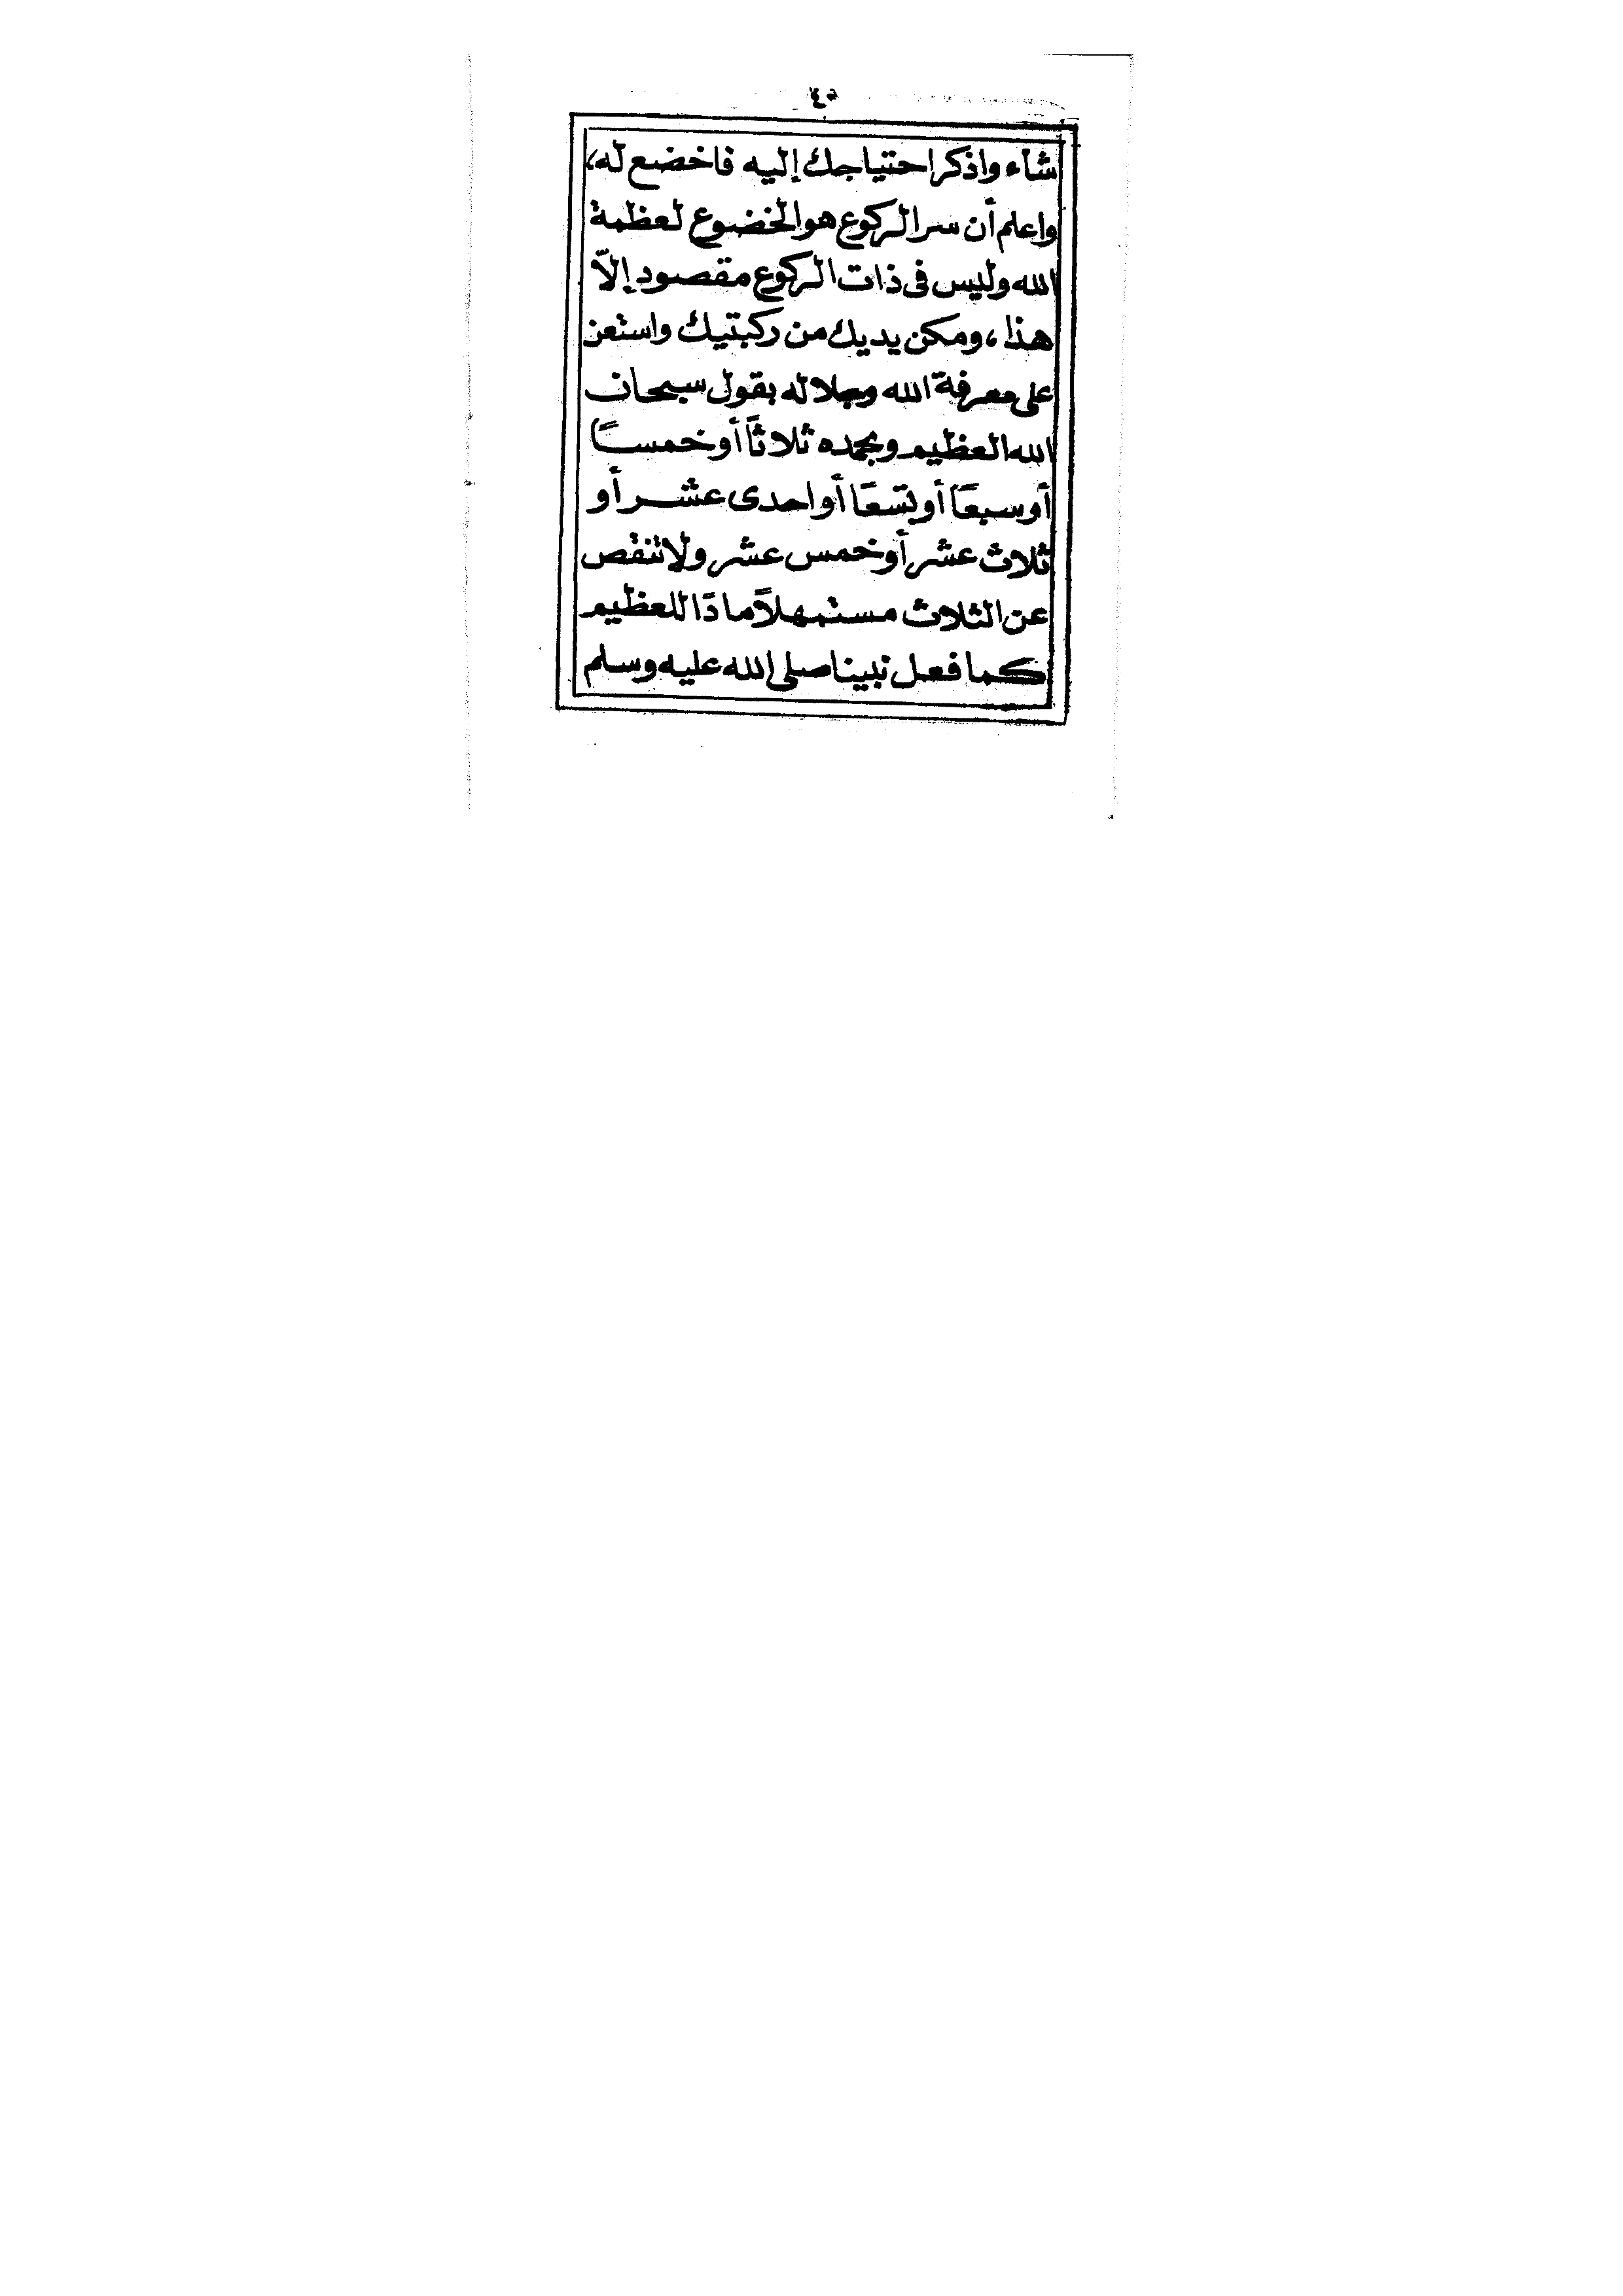 ٤٥
شاء واذكر احتياجك إليه فاخضع له،
واعلم أن سر الركوع هو الخضوع لعظمة
الله وليس فى ذات الركوع مقصود إلاّ
هذا، ومكن يديك من ركبتيك واستعن
على معرفة الله وجلاله بقول سبحان
الله العظيم وبحمده ثلاثًا أو خمسًا
أو سبعًا أو تسعًا أو احدى عشر أو
ثلاث عشر أو خمس عشر ولا تنقص
عن الثلاث مستمهلاً مادًا للعظيم
كما فعل نبينا صلى الله عليه وسلم